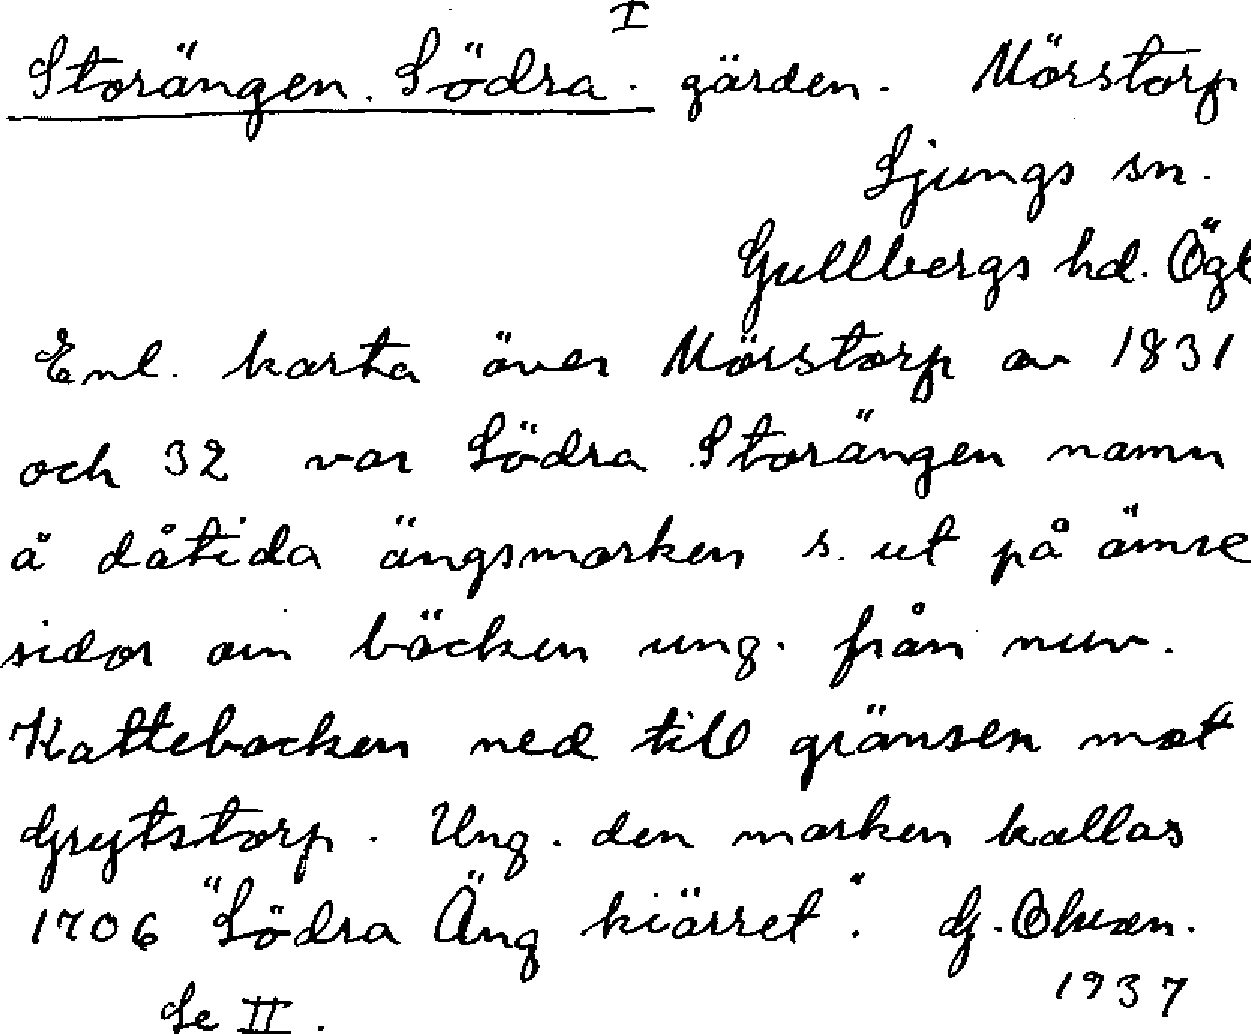 I
Storängen. Södra. gärden. Mörstorp
Ljungs sn.
Gullbergs hd. Ögl
Enl. karta över Mörstorp av 1831
och 32 var Södra Storängen namn
å dåtida ängsmarken s. ut på ömse
sidor om bäcken ung. från nuv.
Kattebacken ned till gränsen mot
Grytstorp. Ung. den marken kallas
1706 "Södra Äng kiärret". G.
1937
Se II.